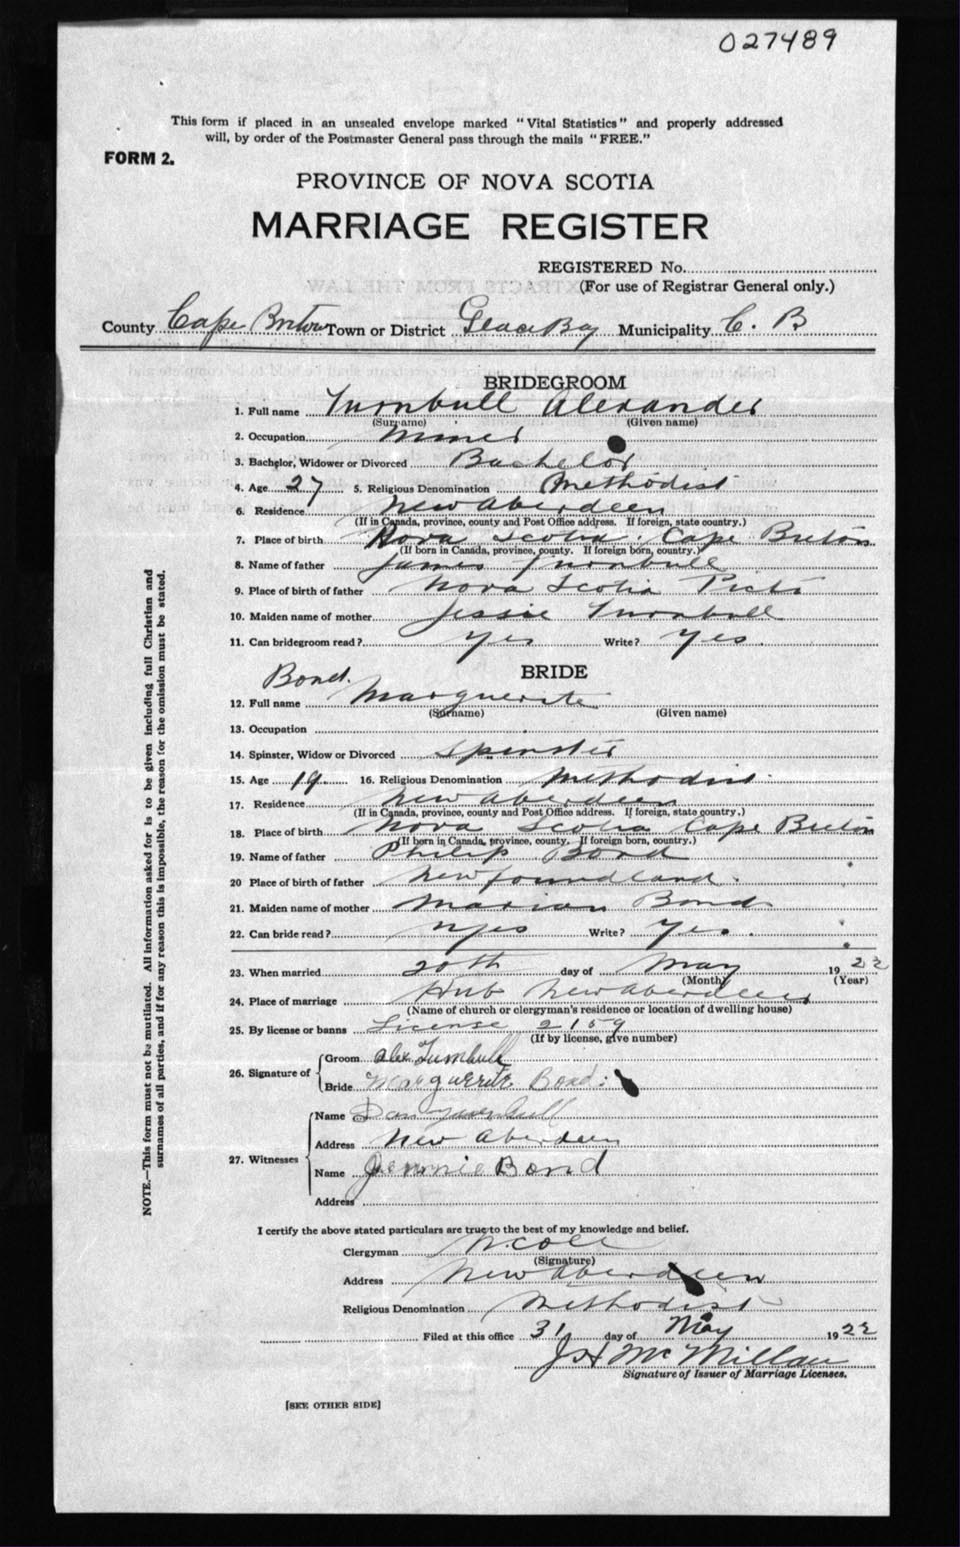 027489
This form if placed in an unsealed envelope marked "Vital Statistics" and properly addressed
will, by order of the Postmaster General pass through the mails "FREE."
FORM 2.
PROVINCE OF NOVA SCOTIA
MARRIAGE REGISTER
REGISTERED No.
(For use of Registrar General only.)
County Cape Breton Town or District Glace Bay Municipality C. B
BRIDEGROOM
1. Full name Turnbull Alexander
(Surname) (Given name)
2. Occupation Miner
3. Bachelor, Widower or Divorced Bachelor
4. Age 27 5. Religious Denomination Methodist
6. Residence New Aberdeen
(If in Canada, province, county and Post Office address. If foreign, state country.)
7. Place of birth Nova Scotia. Cape Breton
(If born in Canada, province, county. If foreign born, country.)
8. Name of father James Turnbull
9. Place of birth of father Nova Scotia
10. Maiden name of mother Jessie Turnbull
11. Can bridegroom read? Yes Write? Yes.
BRIDE
Bond.
12. Full name Marguerite
(Surname) (Given name)
13. Occupation
14. Spinster, Widow or Divorced Spinster
15. Age 19 16. Religious Denomination Methodist.
17. Residence New Aberdeen
(If in Canada, province, county and Post Office address. If foreign, state country.)
18. Place of birth Nova Scotia Cape Breton
(If born in Canada, province, county. If foreign born, country.)
19. Name of father Philip Bond
20 Place of birth of father Newfoundland.
21. Maiden name of mother Marian Bond
22. Can bride read? Yes Write? Yes.
23. When married 20th day of May 1922
(Month) (Year)
24. Place of marriage Hub New Aberdeen
(Name of church or clergyman's residence or location of dwelling house)
25. By license or banns License 2159
(If by license, give number)
26. Signature of
Groom Alex Turnbull
Bride Marguerite Bond.
27. Witnesses
Name Dan Turnbull
Address New Aberdeen
Name Jennnie Bond
Address
I certify the above stated particulars are true to the best of my knowledge and belief.
Clergyman
(Signature)
Address New Aberdeen
Religious Denomination Methodist
Filed at this office 31 day of May 1922
J H McMillan
Signature of Issuer of Marriage Licenses.
[SEE OTHER SIDE]
NOTE.—This form must not be mutilated. All information asked for is to be given including full Christian and
surnames of all parties, and if for any reason this is impossible, the reason for the omission must be stated.